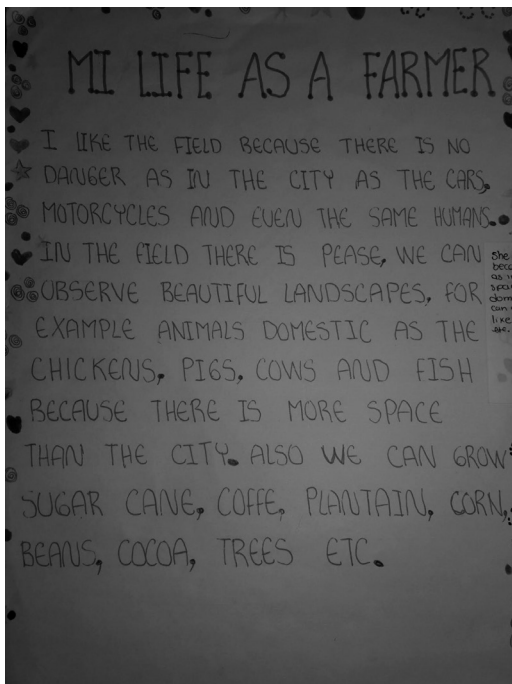 MI LIFE AS A FARMER
I LIKE THE FIELD BECAUSE THERE IS NO
DANGER AS IN THE CITY AS THE CARS,
MOTORCYCLES AND EVEN THE SAME HUMANS.
IN THE FIELD THERE IS PEASE, WE CAN
OBSERVE BEAUTIFUL LANDSCAPES, FOR
EXAMPLE ANIMALS DOMESTIC AS THE
CHICKENS, PIGS, COWS AND FISH
BECAUSE THERE IS MORE SPACE
THAN THE CITY. ALSO WE CAN GROW
SUGAR CANE, COFFE, PLANTAIN, CORN,
BEANS, COCOA, TREES ETC.
She
like
etc.